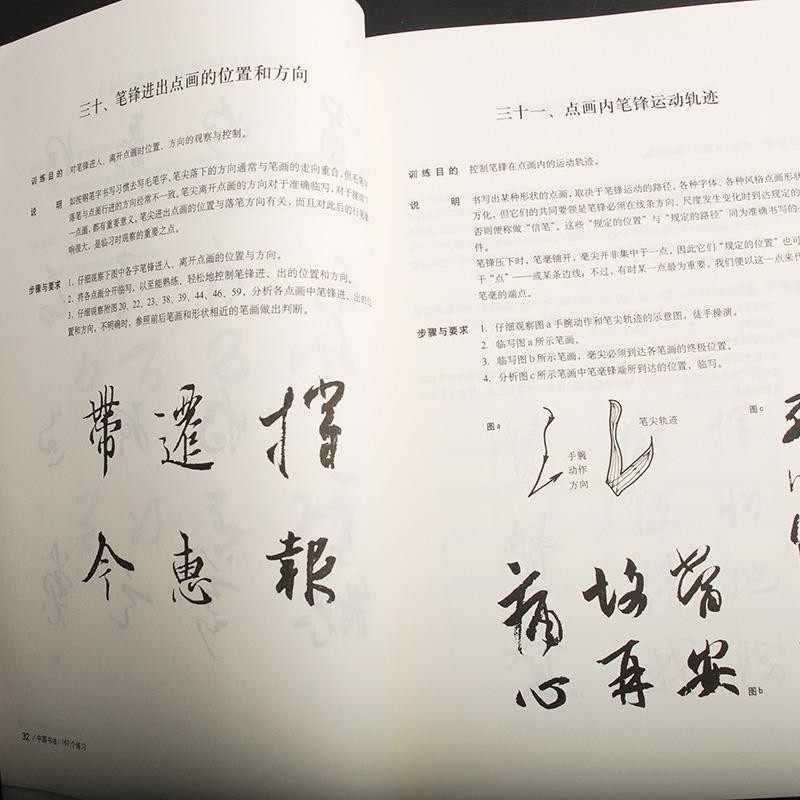 三十、笔锋进出点画的位置和方向
训练目的 对笔锋进入、离开点画时位置、方向的观察与控制。
说 明 如按钢笔字书写习惯去写毛笔字,笔尖落下的方向通常与笔画的走向重合,但毛笔字
落笔与点画行进的方向经常不一致。笔尖离开点画的方向对于准确临写,对于接续下
一点画,都有重要意义。笔尖进出点画的位置与落笔方向有关,而且对此后的行笔影
响很大,是临习时观察的重要之点。
步骤与要求 1. 仔细观察下图中各字笔锋进入、离开点画的位置与方向。
2. 将各点画分开临写,以至能熟练、轻松地控制笔锋进、出的位置和方向。
3. 仔细观察附图20、22、23、38、39、44、46、59,分析各点画中笔锋进、出的位
置和方向,不明确时,参照前后笔画和形状相近的笔画做出判断。
帶 遷 撐
今 惠 報
32 / 中国书法 / 167个练习
三十一、点画内笔锋运动轨迹
训练目的 控制笔锋在点画内的运动轨迹。
说 明 书写出某种形状的点画,取决于笔锋运动的路径。各种字体、各种风格点画形状
万化,但它们的共同要领是笔锋必须在线条方向、尺度发生变化时到达规定的
否则便称做“信笔”。这些“规定的位置”与“规定的路径”同为准确书写的
件。
笔锋压下时,笔毫铺开,毫尖并非集中于一点,因此它们“规定的位置”也可
干“点”——或某条边线;不过,有时某一点最为重要,我们便以这一点来代
笔毫的端点。
步骤与要求 1. 仔细观察图a手腕动作和笔尖轨迹的示意图,徒手操演。
2. 临写图a所示笔画。
3. 临写图b所示笔画,毫尖必须到达各笔画的终极位置。
4. 分析图c所示笔画中笔毫锋端所到达的位置,临写。
图a
笔尖轨迹
图c
手腕
动作
方向
心 再 安
图b